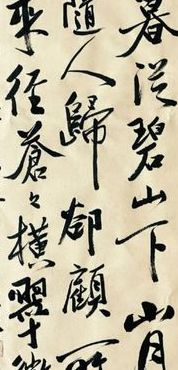 暮從碧山下山月
隨人歸卻顧所
來徑蒼々橫翠微